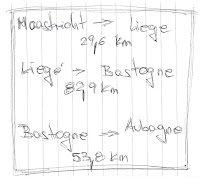 Maastricht -> Liege
29,6 km
Liegé -> Bastogne
82,9 km
Bastogne -> Aubagne
53,8 km